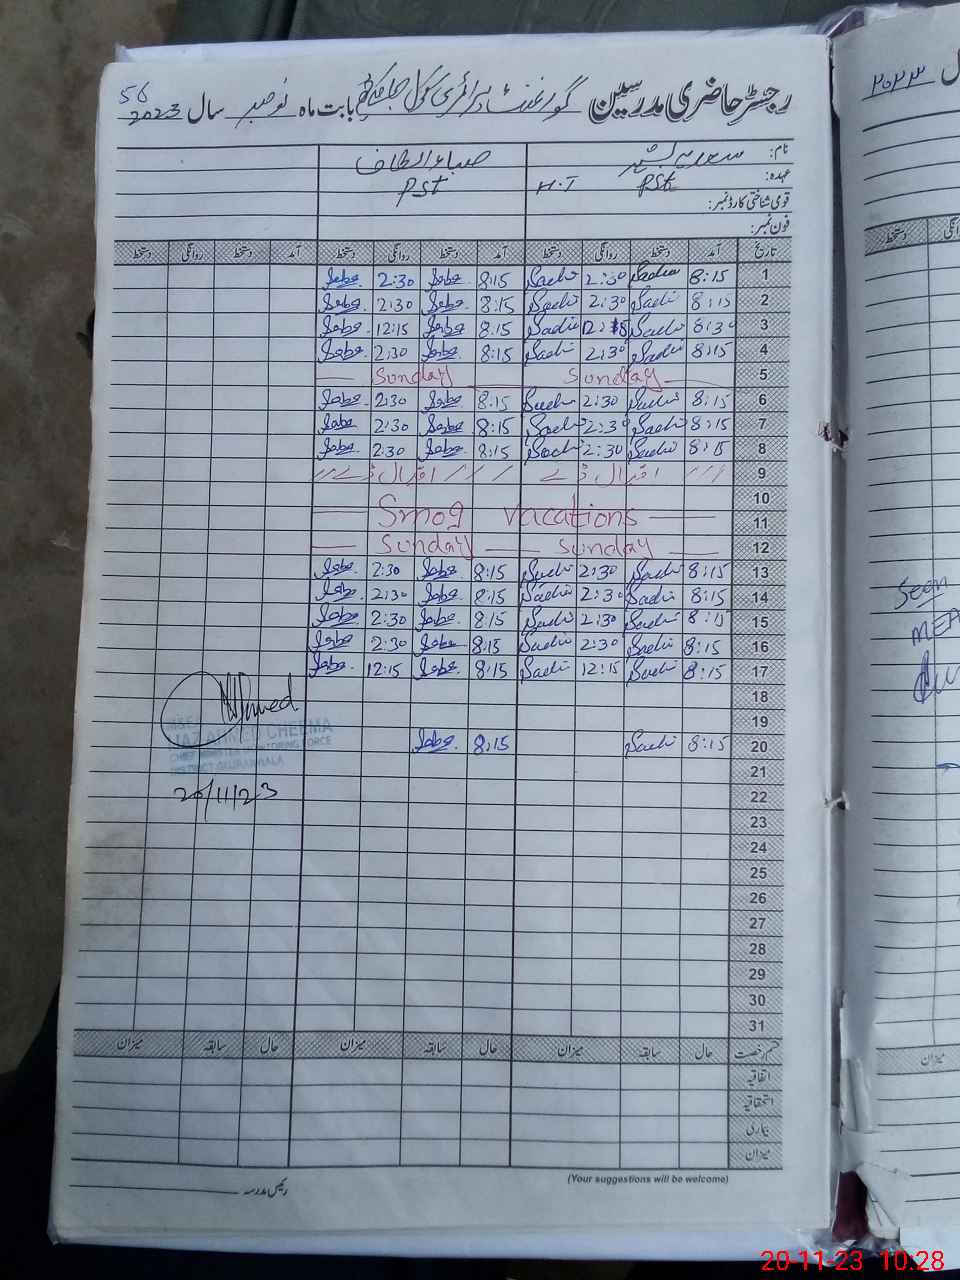 رجسٹر حاضری مدرسین گورنمنٹ پرائمری سکول بابت ماہ نومبر سال 2023
56
نام: سعدیہ بشیر صباء الطاف
عہدہ: PST H.T PST
قومی شناختی کارڈ نمبر:
فون نمبر:
تاریخ آمد دستخط روانگی دستخط آمد دستخط روانگی دستخط آمد دستخط روانگی دستخط
1 8:15 Sadia 2:30 Sadia 8:15 Saba 2:30 Saba
2 8:15 Sadia 2:30 Sadia 8:15 Saba 2:30 Saba
3 8:30 Sadia 12:15 Sadia 8:15 Saba 12:15 Saba
4 8:15 Sadia 2:30 Sadia 8:15 Saba 2:30 Saba
5 Sunday Sunday
6 8:15 Sadia 2:30 Sadia 8:15 Saba 2:30 Saba
7 8:15 Sadia 2:30 Sadia 8:15 Saba 2:30 Saba
8 8:15 Sadia 2:30 Sadia 8:15 Saba 2:30 Saba
9 اقبال ڈے اقبال ڈے
10
Smog vacations
11
12 Sunday Sunday
13 8:15 Sadia 2:30 Sadia 8:15 Saba 2:30 Saba
14 8:15 Sadia 2:30 Sadia 8:15 Saba 2:30 Saba
15 8:15 Sadia 2:30 Sadia 8:15 Saba 2:30 Saba
16 8:15 Sadia 2:30 Sadia 8:15 Saba 2:30 Saba
17 8:15 Sadia 12:15 Sadia 8:15 Saba 12:15 Saba
18
19
20 8:15 Sadia 8:15 Saba
21
22
23
24
25
26
27
28
29
30
31
Ahmed
AHMED CHEEMA
CHIEF MINISTER MONITORING FORCE
DISTRICT GUJRANWALA
20/11/23
قسم رخصت حال سابقہ میزان حال سابقہ میزان حال سابقہ میزان
اتفاقیہ
استحقاقیہ
بیماری
میزان
(Your suggestions will be welcome)
رئیس مدرسہ
۲۰۲۳
دستخط
Seen
MEA
میزان
20-11-23 10:28